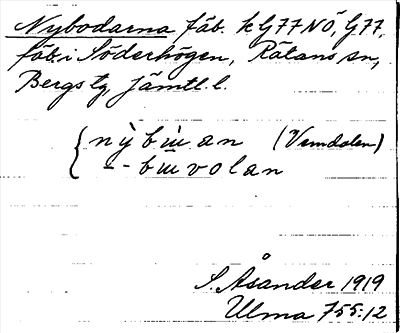 Nybodarna fäb. k G77 NÖ, G77,
fäb. i Söderhögen, Rätans sn,
Bergs tg, Jämtl. l.
nỳbɯ̀an (Vemdalen)
--bɯvolan
S. Åsander 1919
Ulma 755:12